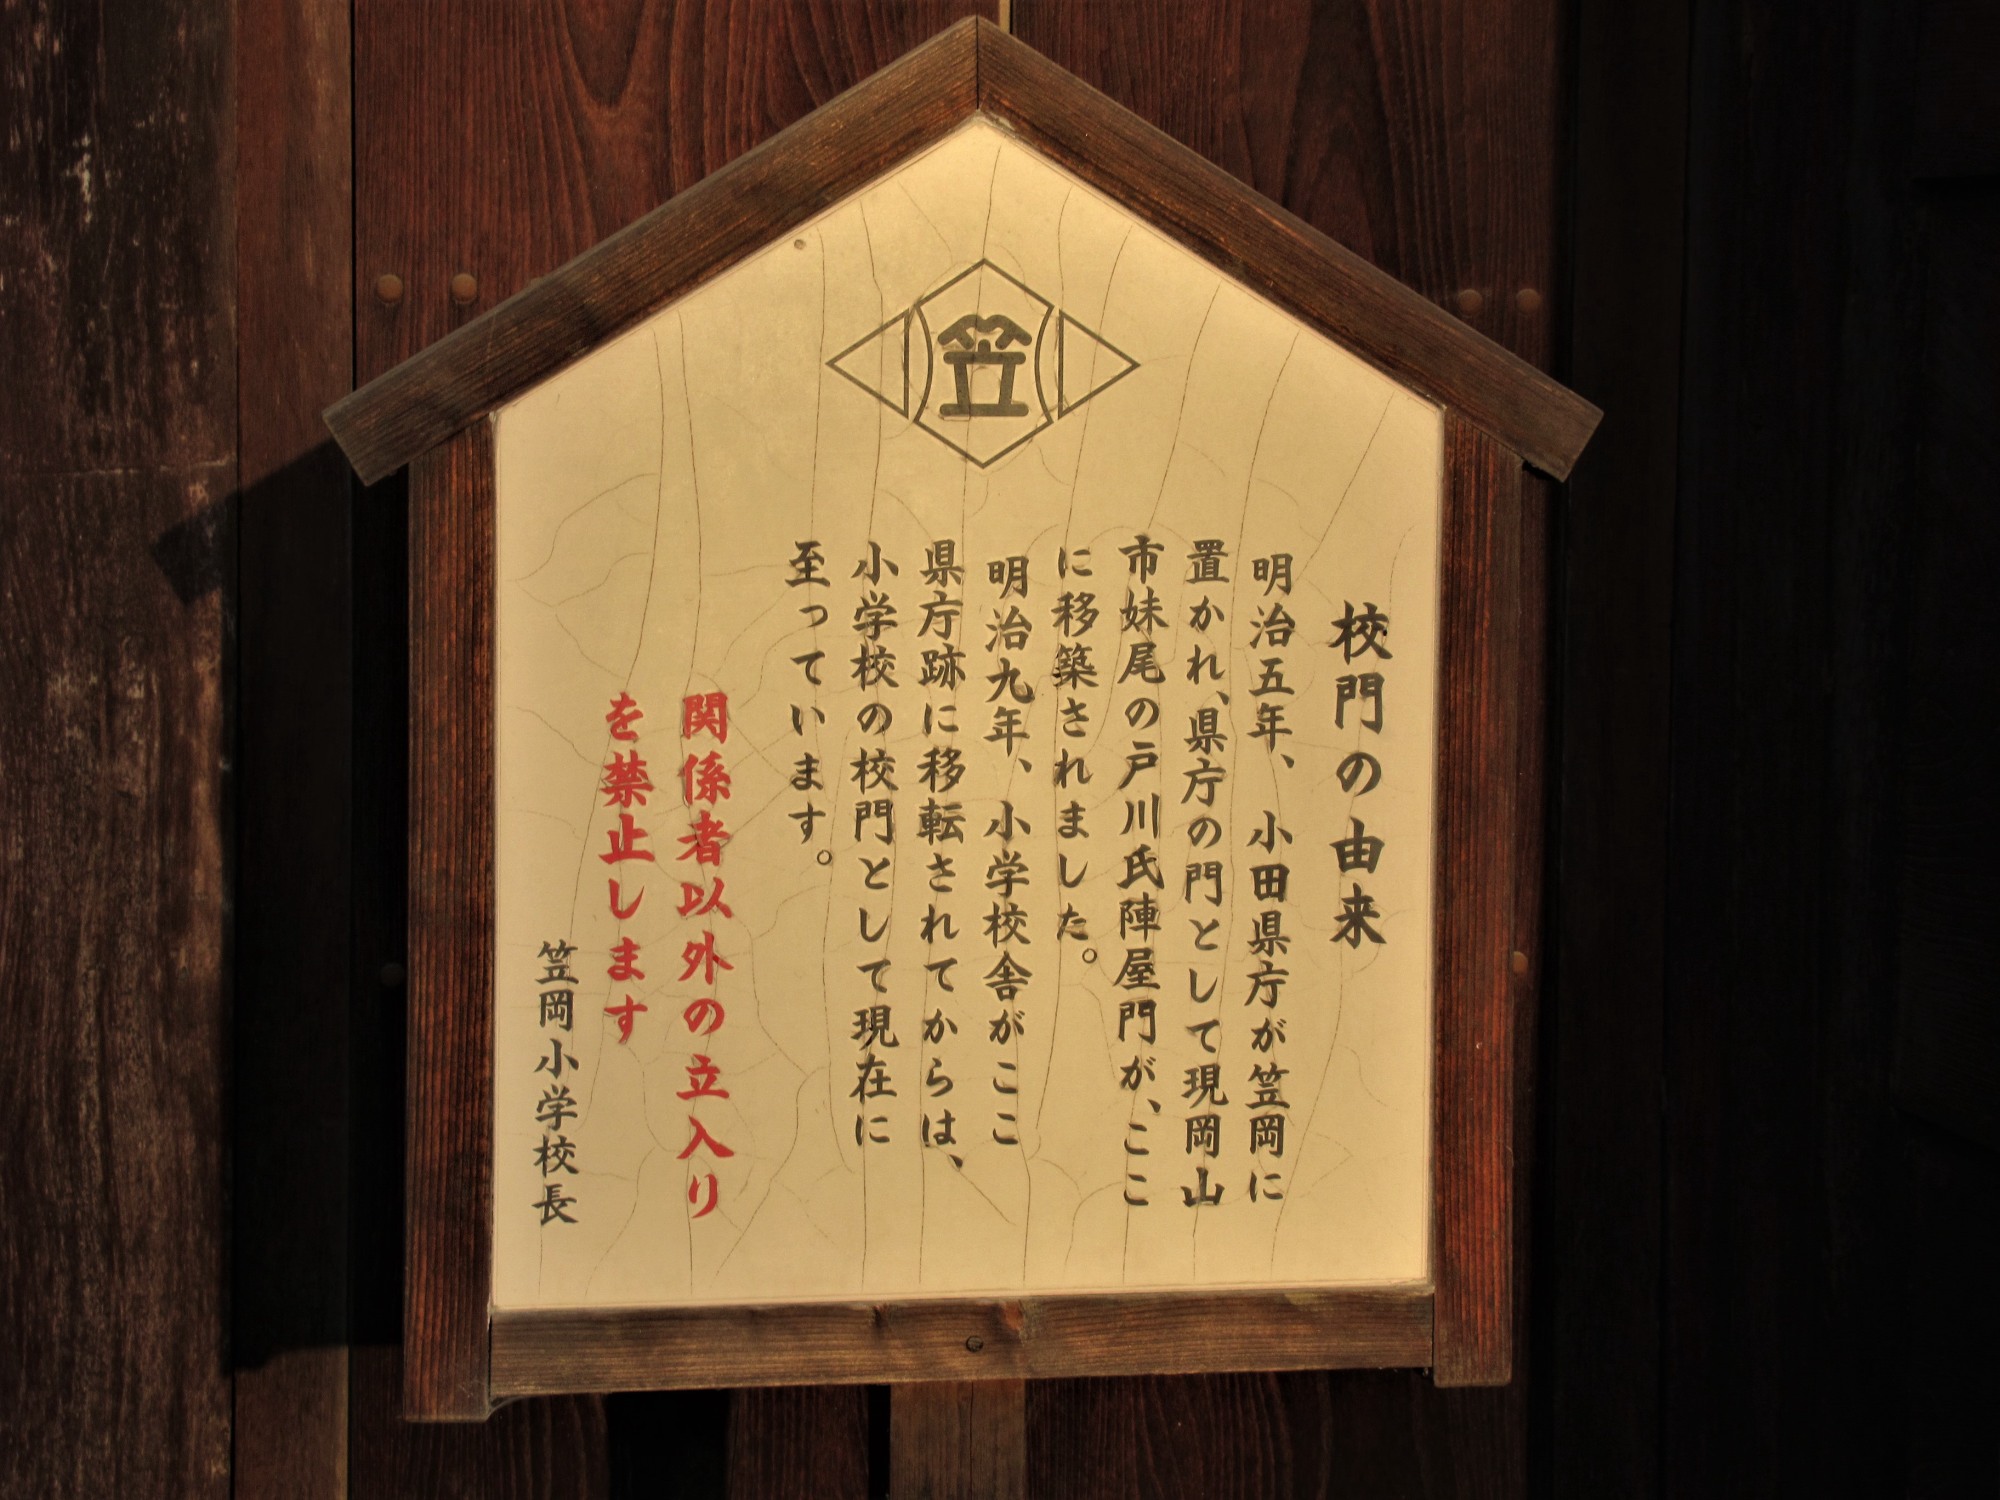 笠
校門の由来
明治五年、小田県庁が笠岡に
置かれ、県庁の門として現岡山
市妹尾の戸川氏陣屋門が、ここ
に移築されました。
明治九年、小学校舎がここ
県庁跡に移転されてからは、
小学校の校門として現在に
至っています。
関係者以外の立入り
を禁止します
笠岡小学校長